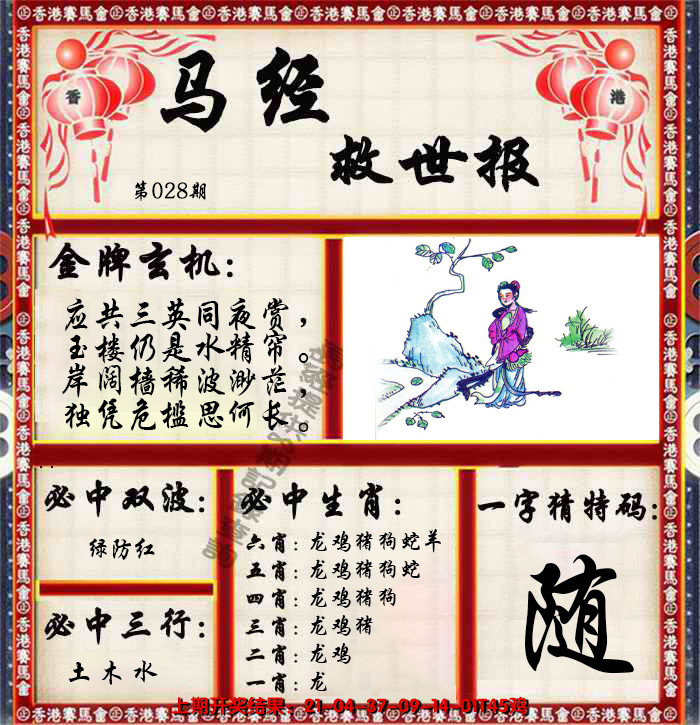 香港賽馬會
香
港
马经
救世报
第028期
金牌玄机:
应共三英同夜赏，
玉楼仍是水精帘。
岸阔樯稀波渺茫，
独凭危槛思何长。
必中双波:
绿防红
必中三行:
土木水
必中生肖:
六肖: 龙鸡猪狗蛇羊
五肖: 龙鸡猪狗蛇
四肖: 龙鸡猪狗
三肖: 龙鸡猪
二肖: 龙鸡
一肖: 龙
一字猜特码:
随
上期开奖结果: 21-04-37-09-14-01T45鸡